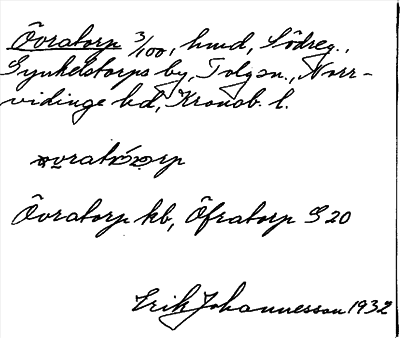 Övratorp 3/100, hmd, Södreg.,
Synkelstorps by, Tolg sn., Norr-
vidinge hd, Kronob. l.
Övratorp kb, Öfratorp S 20
Erik Johannesson 1932